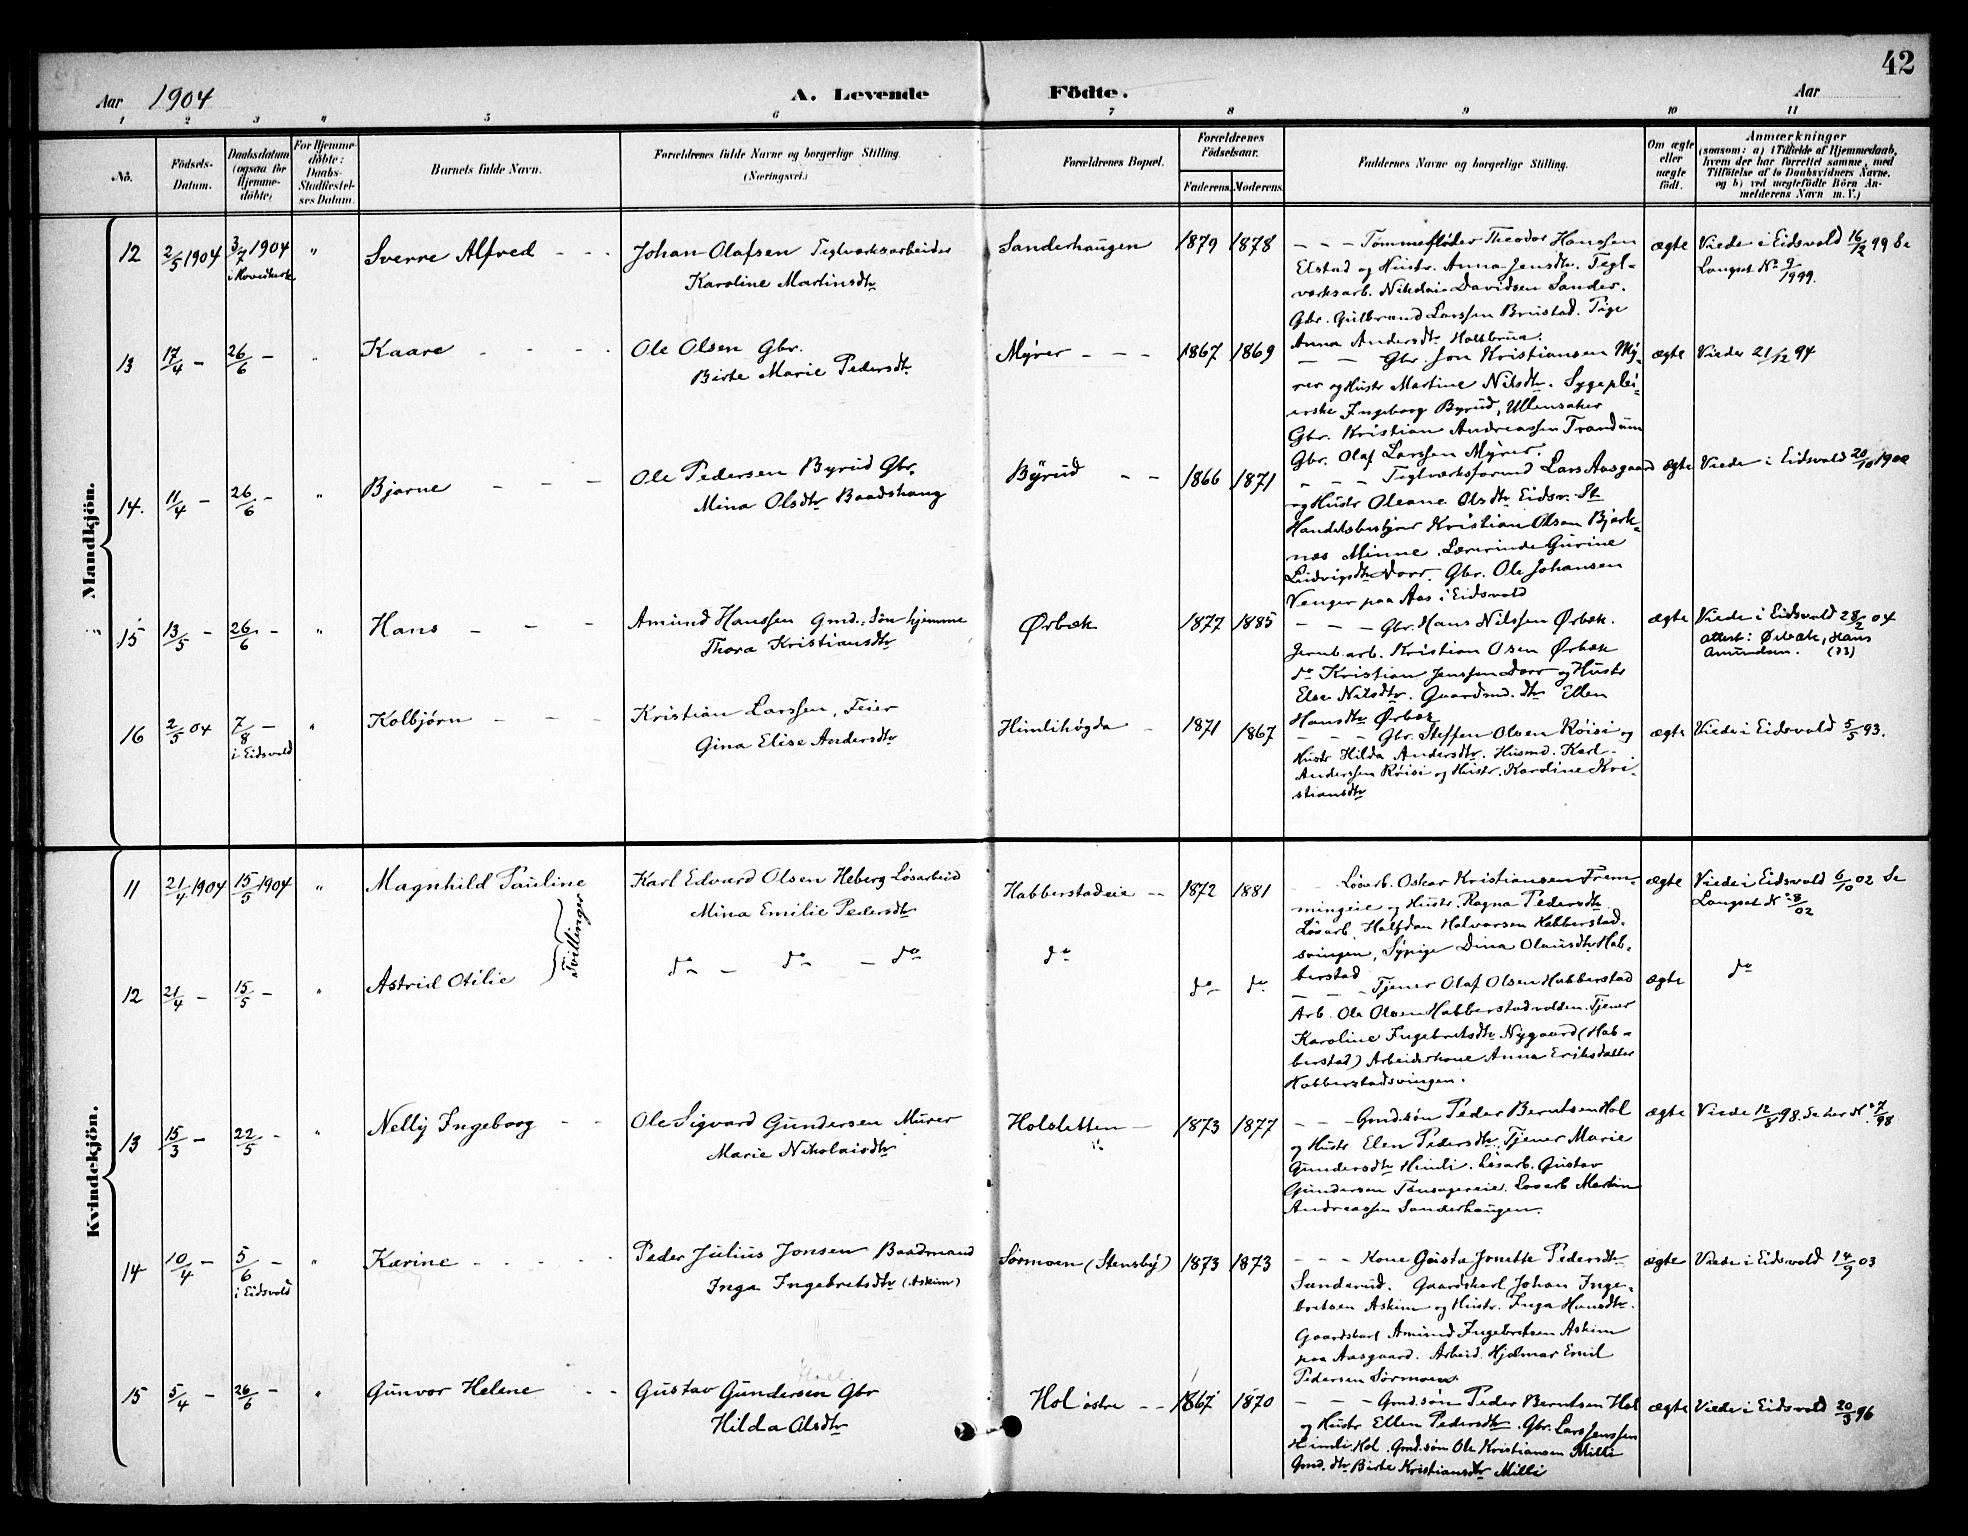 42
Aar 1904 A. Levende Födte. Aar
1 2 3 4 5 6 7 8 9 10 11
No. Födsels-Datum. Daabsdatum (ogsaa for Hjemmedöbte) For Hjemmedöbte: Daabs-Stadfæstelses Datum. Barnets fulde Navn. Forældrenes fulde Navne og borgerlige Stilling. (Næringsvei.) Forældrenes Bopæl. Forældrenes Födselsaar. Faderens. Moderens. Faddernes Navne og borgerlige Stilling. Om ægte eller uægte födt. Anmærkninger (saasom: a) i Tilfælde af Hjemmedaab, hvem der har forrettet samme, med Tilföielse af to Daabsvidners Navne. og b) ved uægtefödte Börn Anmelderens Navn m. V.)
Mandkjön.
12 2/5 1904 3/7 1904 " Sverre Alfred - - Johan Olafsen Teglverksarbeider Sanderhaugen 1879 1878 - - - Tømmerfløder Theodor Hanssen ægte Viede i Eidsvold 16/12 99 Se
i Hovidkirke Karoline Martinsdtr Elstad og Hustr. Anna Jensdtr. Tegl- Langset No 9/1999.
verksarb. Nikolai Davidsen Sander.
Gbr. Gulbrand Larssen Brustad. Pige
Anna Andersdtr Holtbrua.
13 17/4 - 26/6 - " Kaare - - - Ole Olsen Gbr. Myrer - - - 1867 1869 - - Gbr. Jon Kristiansen My- ægte Viede 21/12 94
Birte Marie Pedersdtr. rer og Hustr Martine Nilsdtr. Sygeplei-
erske Ingeborg Byrud, Ullensaker
Gbr. Kristian Andreassen Trandum
Gbr. Olaf Larssen Myrer.
14. 11/4 - 26/6 - " Bjarne - - - Ole Pedersen Byrud Gbr. Byrud - - 1866 1871 - - - Teglverksformd Lars Aasgaard ægte Viede i Eidsvold 20/10 1900
Mina Olsdtr Baadshaug og Hustr Oleane Olsdtr Eidsv. St
Handelsbestyrer Kristian Olsen Bjerk-
nes Minne. Lærerinde Gurine
Ludvigsdtr Dorr. Gbr. Ole Johansen
Venger paa Aas i Eidsvold
15 13/5 - 26/6 - " Hans - - - Amund Hanssen Gmd. søn hjemme Ørbæk 1877 1885 - - - Gbr. Hans Nilssen Ørbæk. ægte Viede i Eidsvold 28/2 04
Thora Kristiansdtr Jernb. arb. Kristian Olsen Ørbæk attest: Ørbæk, Hans
do Kristian Jenssen Dorr og Hustr Amundsen. (73)
Else Nilsdtr. Gaardmd. dtr Ellen
Hansdtr Ørbæk
16 2/5 04 7/8 - " Kolbjørn - - - Kristian Larssen, Feier Himlihøgda - 1871 1867 - - - Gbr. Steffen Olsen Røisi og ægte Viede i Eidsvold 5/5 93.
i Eidsvold Gina Elise Andersdtr Hustr Hilda Andersdtr. Husmd. Karl
Anderssen Røisi og Hustr. Karoline Kri-
stiansdtr
Kvindekjön.
11 21/4 1904 15/5 1904 " Magnhild Pauline Karl Edvard Olsen Heberg Løsarbeid Habberstadeie - 1872 1881 Løsarb. Oskar Kristiansen Frem- ægte Viede i Eidsvold 6/10 02 Se
Tvillinger Mina Emilie Pedersdtr mingeie og Hustr. Ragna Pedersdtr Langset No 8/02
Løsarb. Halfdan Halvorsen Habberstad-
svingen, Sypige Dina Olausdtr Hab-
berstad
12 21/4 - 15/5 - " Astrid Otilie do - do - do do do do - - - Tjener Olaf Olsen Habberstad ægte do
Arb. Ole Olsen Habberstadvolden. Tjener
Karoline Ingebretsdtr Nygaard (Hab-
berstad) Arbeiderkone Anna Eriksdatter
Habberstadsvingen.
13 15/3 - 22/5 - " Nelly Ingeborg - - Ole Sigvard Gundersen Murer Holsletten - 1873 1877 - - - Gmd. søn Peder Berntsen Hol ægte Viede 12/8 98. Se her No 7/98
Marie Nikolaisdtr og Hustr Elen Pedersdtr. Tjener Marie
Gundersdtr Himli. Løsarb. Gustav
Gundersen Tønsagereie. Løsarb Martin
Andreassen Sanderhaugen.
14 10/4 - 5/6 - " Karine - - - - Peder Julius Jonsen Baadmand Sørmoen (Stensby) 1873 1873 - - - Kone Gusta Jonette Pedersdtr ægte Viede i Eidsvold 14/9 03
i Eidsvold Inga Ingebretsdtr (Askim) Sanderud. Gaardskarl Johan Inge-
bretsen Askim og Hustr. Inga Hansdtr.
Gaardskarl Amund Ingebretsen Askim
paa Aasgaard. Arbeid. Hjalmar Emil
Pedersen Sørmoen.
15 5/4 - 26/6 - " Gunvor Helene - - Gustav Gundersen Gbr Hol østre - - 1867 1870 - - - Gmd. søn Peder Berntsen Hol ægte Viede i Eidsvold 20/3 96
Hilda Olsdtr og Hustr Ellen Pedersdtr. Gbr. Lars Jenssen
Himli Hol. Gmd. søn Ole Kristiansen Milli
Gmd. dtr Birte Kristiansdtr Milli